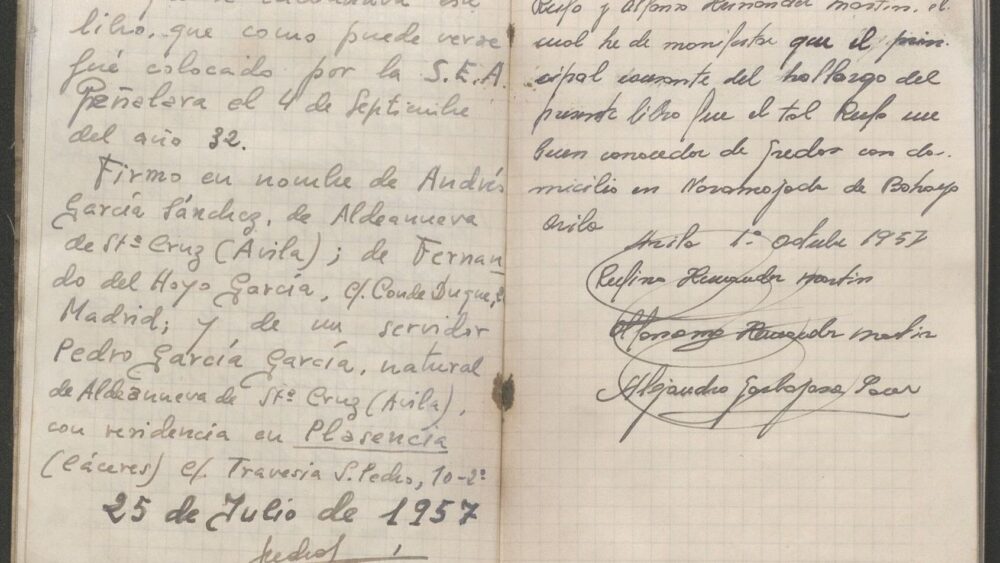 libro, que como puede verse
fué colocado por la S.E.A.
Peñalara el 4 de Septiembre
del año 32.
Firmo en nombre de Andrés
García Sánchez, de Aldeanueva
de Stª Cruz (Avila); de Fernan
do del Hoyo García, c/. Conde Duque,
Madrid; y de un servidor
Pedro García García, natural
de Aldeanueva de Stª Cruz (Avila),
con residencia en Plasencia
(Cáceres) c/. Travesia S. Pedro, 10-2º
25 de Julio de 1957
Rufo y Alfonso Hernandez Martin, el
cual he de manifestar que el prin-
cipal causante del hallazgo del
presente libro fue el tal Rufo un
buen conocedor de Gredos con do-
micilio en Navamojada de Bohoyo
Avila
Avila 1º octubre 1957
Rufino Hernandez Martin
Alfonso Hernandez Martin
Alejandro